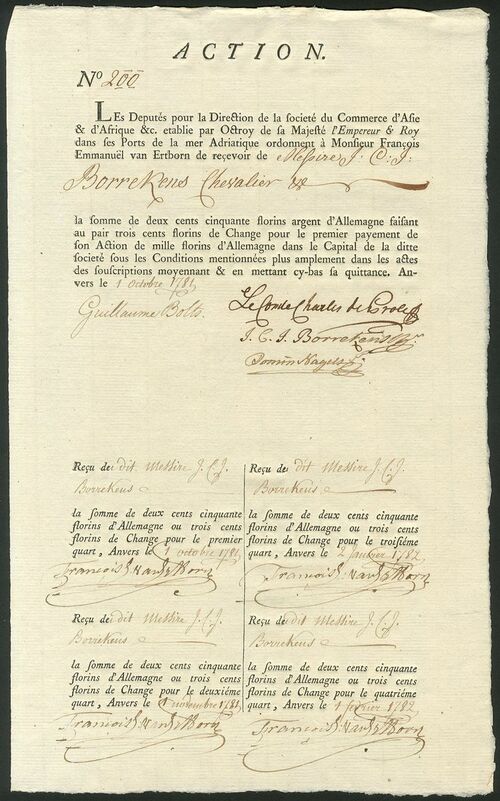 ACTION.
Nº 200
LEs Deputés pour la Direction de la societé du Commerce d'Asie
& d'Afrique &c. etablie par Octroy de sa Majesté l'Empereur & Roy
dans ses Ports de la mer Adriatique ordonnent à Monsieur François
Emmanuël van Ertborn de reçevoir de Messire J. C. J.
Borrekens Chevalier &c
la somme de deux cents cinquante florins argent d'Allemagne faisant
au pair trois cents florins de Change pour le premier payement de
son Action de mille florins d'Allemagne dans le Capital de la ditte
societé sous les Conditions mentionnées plus amplement dans les actes
des souscriptions moyennant & en mettant cy-bas sa quittance. An-
vers le 1 octobre 1781
Guillaume Bolts.
Le Comte Charles de Proli
J. C. J. Borrekens
Domin Nagels
Reçu de dit Messire J. C. J.
Borrekens
la somme de deux cents cinquante
florins d'Allemagne ou trois cents
florins de Change pour le premier
quart, Anvers le 1 octobre 1781
François E. van Ertborn
Reçu de dit Messire J. C. J.
Borrekens
la somme de deux cents cinquante
florins d'Allemagne ou trois cents
florins de Change pour le troisiéme
quart, Anvers le 2 janvier 1782
François E. van Ertborn
Reçu de dit Messire J. C. J.
Borrekens
la somme de deux cents cinquante
florins d'Allemagne ou trois cents
florins de Change pour le deuxiéme
quart, Anvers le 1 novembre 1781
François E. van Ertborn
Reçu de dit Messire J. C. J.
Borrekens
la somme de deux cents cinquante
florins d'Allemagne ou trois cents
florins de Change pour le quatriéme
quart, Anvers le 1 fevrier 1782
François E. van Ertborn